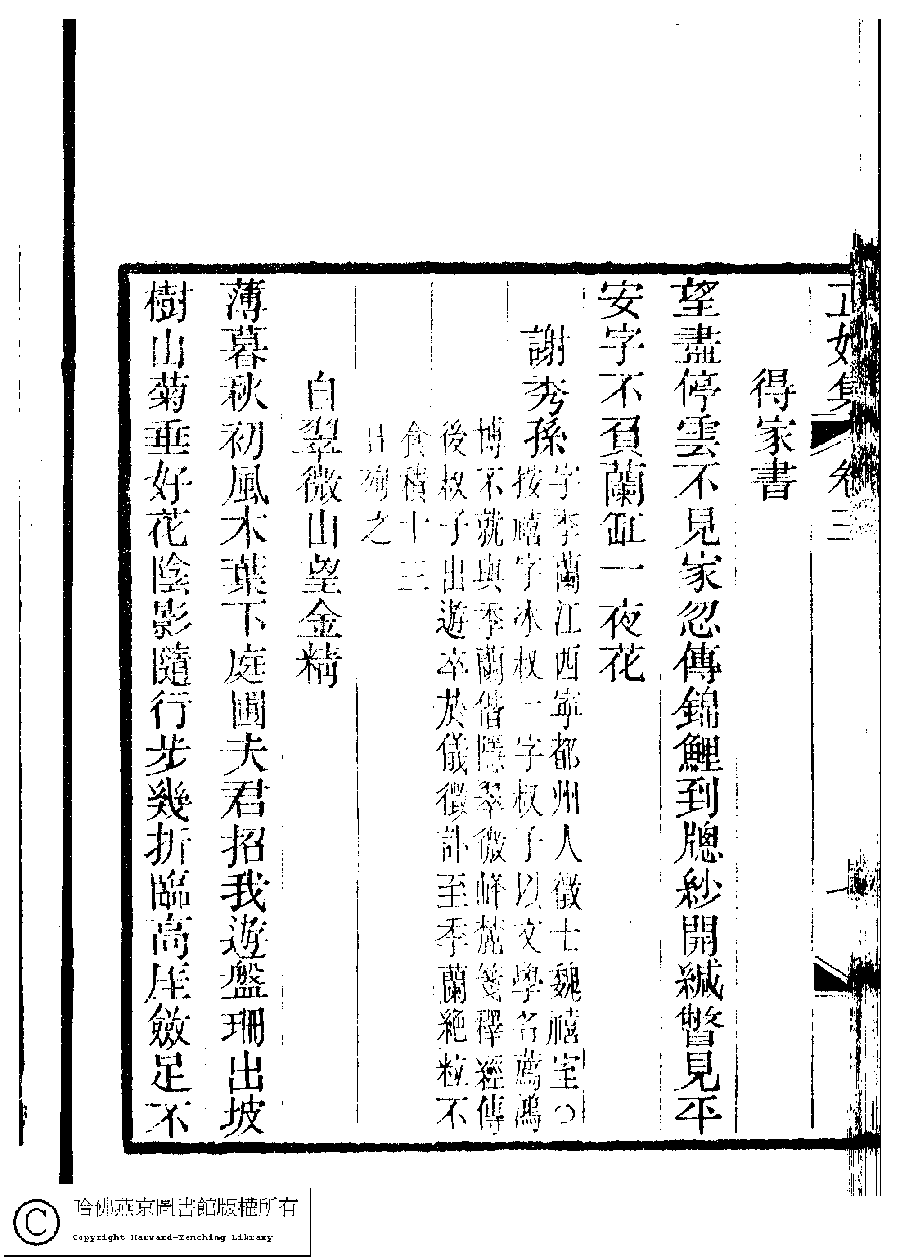 正始集 卷三
七
得家書
望盡停雲不見家忽傳錦鯉到牕紗開緘瞥見平
安字不負蘭缸一夜花
謝秀孫
字季蘭江西寧都州人徵士魏禧室○
按禧字冰叔一字叔子以文學名薦鴻
博不就與季蘭偕隱翠微峰麓箋釋經傳
後叔子出遊卒於儀徵訃至季蘭絶粒不
食積十三
日殉之
自翠微山望金精
薄暮秋初風木葉下庭圃夫君招我遊盤珊出坡
樹山菊垂好花陰影隨行步幾折臨高厓斂足不
哈佛燕京圖書館版權所有
Copyright Harvard-Yenching Library